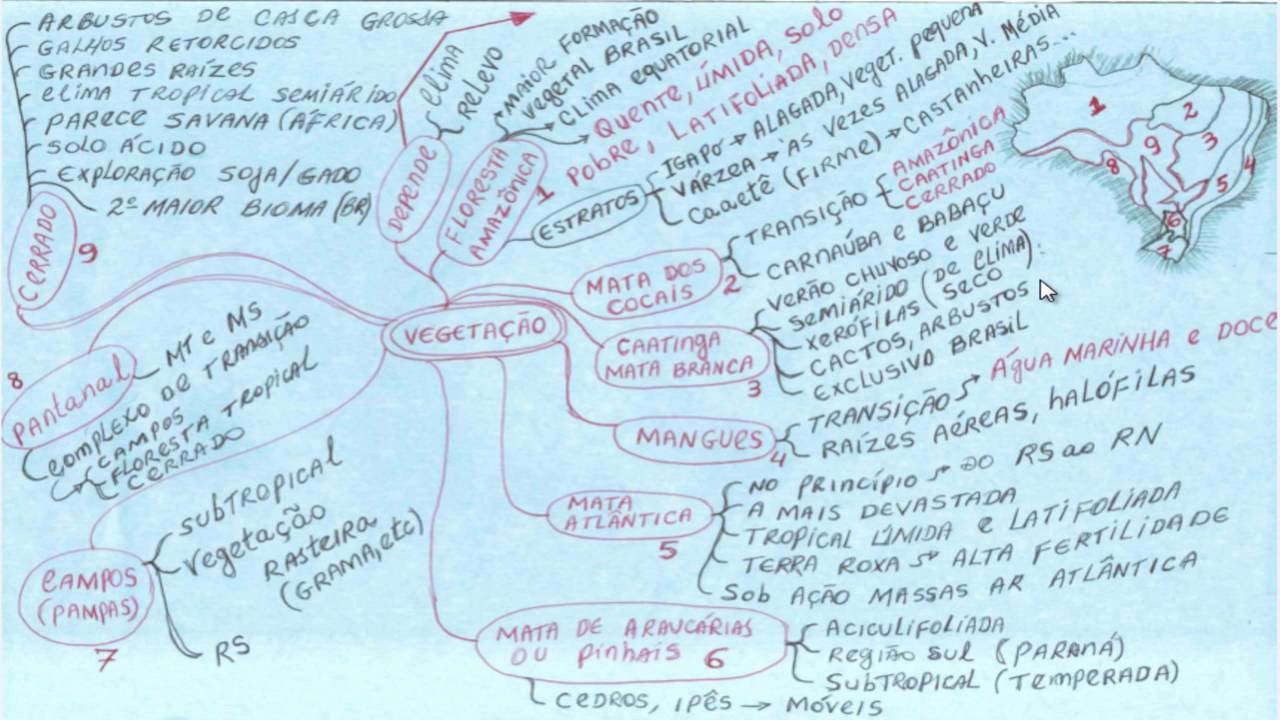 ARBUSTOS DE CASCA GROSSA
GALHOS RETORCIDOS
GRANDES RAÍZES
CLIMA TROPICAL SEMIÁRIDO
PARECE SAVANA (ÁFRICA)
SOLO ÁCIDO
EXPLORAÇÃO SOJA/GADO
2º MAIOR BIOMA (BR)
CERRADO
9
DEPENDE
CLIMA
RELEVO
FLORESTA
AMAZÔNICA
1
MAIOR FORMAÇÃO
VEGETAL BRASIL
CLIMA EQUATORIAL
QUENTE, ÚMIDA, SOLO
POBRE, LATIFOLIADA, DENSA
ESTRATOS
IGAPÓ → ALAGADA, VEGET. PEQUENA
VÁRZEA → ÀS VEZES ALAGADA, V. MÉDIA
CAAETÊ (FIRME) → CASTANHEIRAS...
MATA DOS
COCAIS
2
TRANSIÇÃO
AMAZÔNICA
CAATINGA
CERRADO
CARNAÚBA e BABAÇU
VEGETAÇÃO
CAATINGA
MATA BRANCA
3
VERÃO CHUVOSO e VERDE
SEMIÁRIDO (DE CLIMA).
XERÓFILAS (SECO)
CACTOS, ARBUSTOS
EXCLUSIVO BRASIL
MANGUES
4
TRANSIÇÃO → ÁGUA MARINHA e DOCE
RAÍZES AÉREAS, HALÓFILAS
MATA
ATLÂNTICA
5
NO PRINCÍPIO → DO RS ao RN
A MAIS DEVASTADA
TROPICAL ÚMIDA e LATIFOLIADA
TERRA ROXA → ALTA FERTILIDADE
Sob AÇÃO MASSAS AR ATLÂNTICA
MATA DE ARAUCÁRIAS
OU PINHAIS 6
ACICULIFOLIADA
REGIÃO SUL (PARANÁ)
SUBTROPICAL (TEMPERADA)
CEDROS, IPÊS → MÓVEIS
CAMPOS
(PAMPAS)
7
SUBTROPICAL
VEGETAÇÃO
RASTEIRA
(GRAMA, etc)
RS
8
PANTANAL
MT e MS
COMPLEXO DE TRANSIÇÃO
CAMPOS
FLORESTA TROPICAL
CERRADO
1
2
3
4
5
6
7
8
9